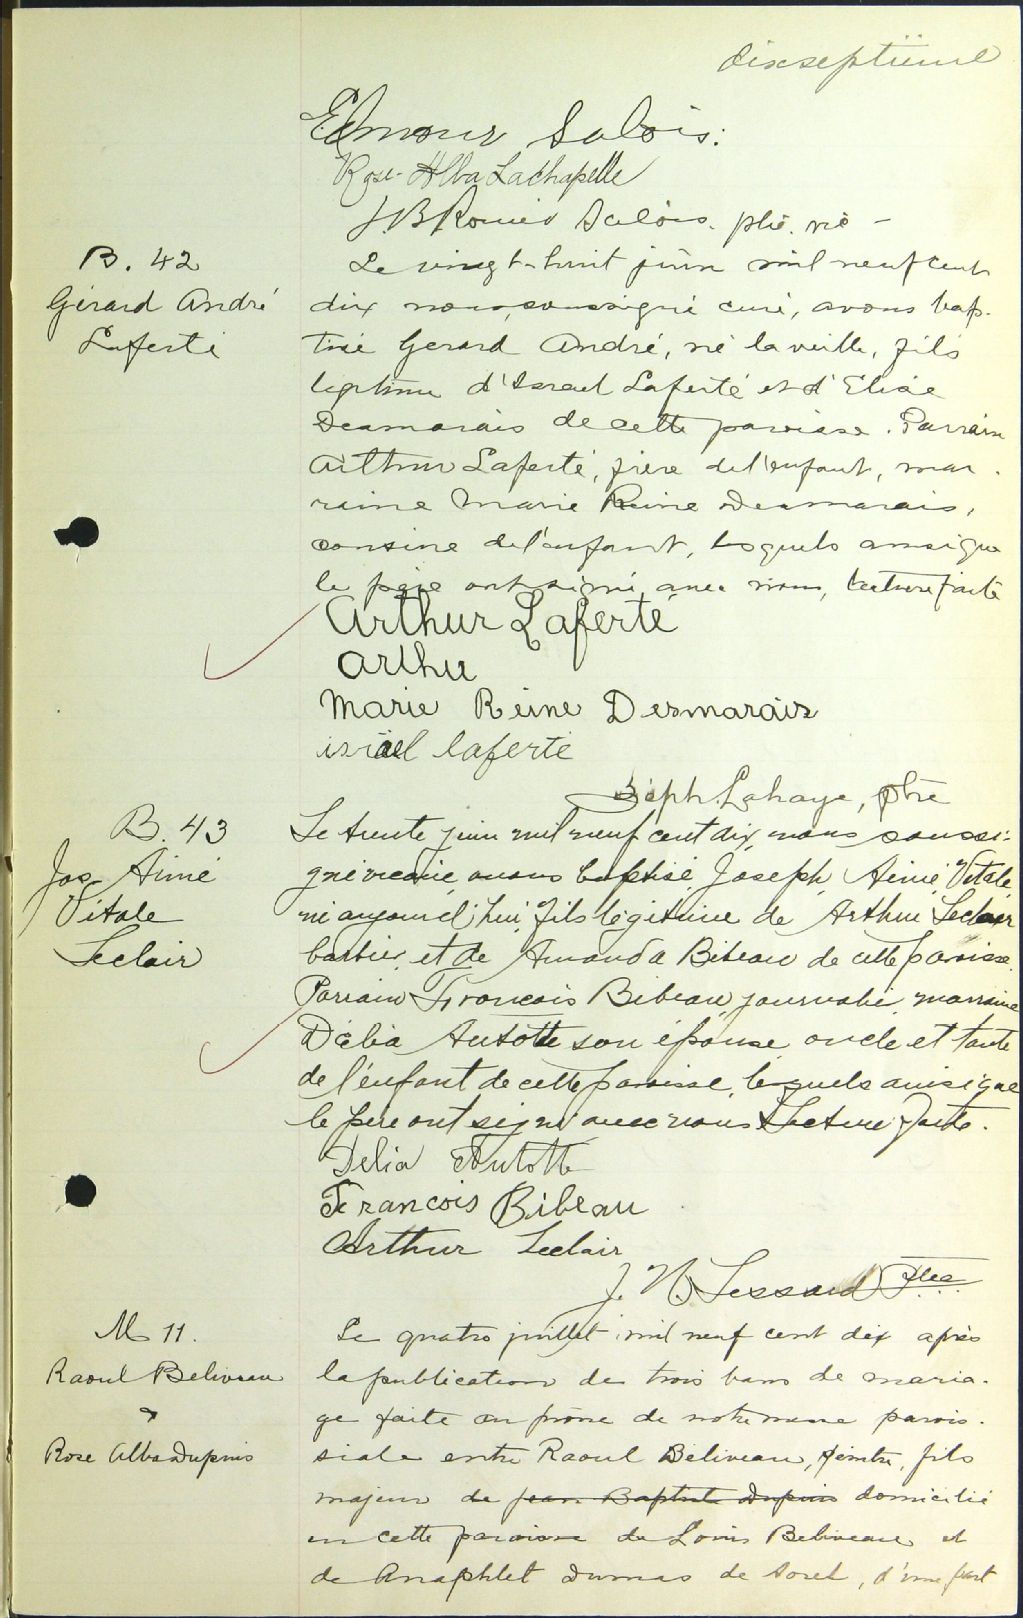 dixseptième
Edmour Salois.
Rose-Alba Lachapelle
J.B Romeo Salois. ptre. vic -
B. 42
Gérard André
Laferté
Le vingt-huit juin mil neuf cent
dix nous, soussigné curé, avons bap-
tisé Gerard André, né la veille, fils
legitime d'Israel Laferté et d'Elise
Desmarais de cette paroisse. Parrain
Arthur Laferté, frère de l'enfant, mar-
raine Marie Reine Desmarais,
cousine de l'enfant, lesquels ainsi que
le père ont signé avec nous, lecture faite
Arthur Laferté
arthu
Marie Reine Desmarais
israël laferte
Séph. Lahaye, ptre
B. 43
Jos Aimé
Vitale
Leclair
Le trente juin mil neuf cent dix, nous soussi-
gné vicaire avons baptisé Joseph, Aimé, Vitale,
né aujourd'hui, fils légitime de Arthur Leclair
barbier, et de Amanda Bibeau de cette paroisse.
Parrain François Bibeau, journalié, marraine
Délia Autotte son épouse, oncle et tante
de l'enfant de cette paroisse, lesquels ainsi que
le père ont signé avec nous Lecture faite.
Delia Autotte
Francois Bibeau
Arthur Leclair
J. N. Lessard Ptre
M 11.
Raoul Beliveau
&
Rose Alba Dupuis
Le quatre juillet mil neuf cent dix après
la publication de trois bans de maria-
ge faite au prône de notre messe parois-
siale entre Raoul Beliveau, peintre, fils
majeur de Jean Baptiste Dupuis domicilié
en cette paroisse de Louis Beliveau et
de Anaphlet Dumas de Sorel, d'une part